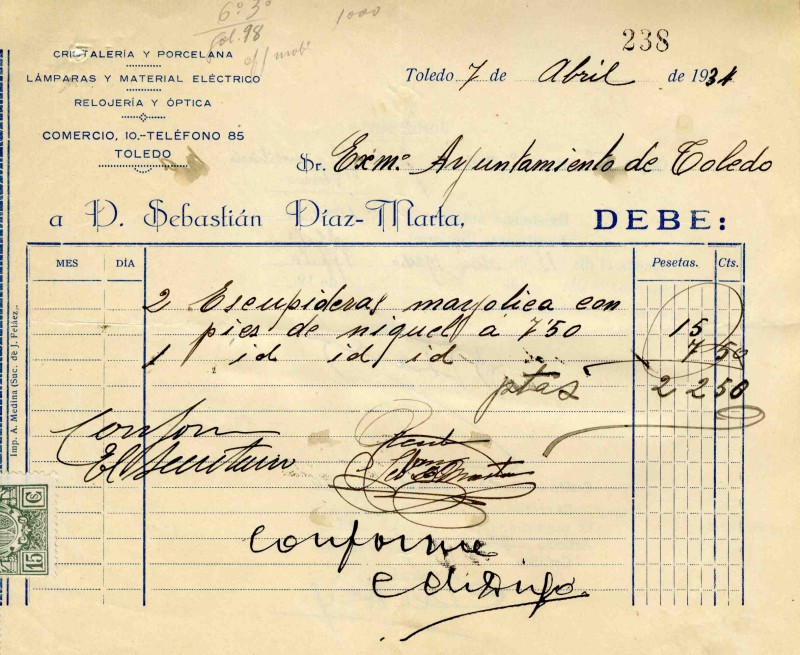 6º. 3º 1000
fol. 98
238
CRISTALERÍA Y PORCELANA
LÁMPARAS Y MATERIAL ELÉCTRICO
RELOJERÍA Y ÓPTICA
COMERCIO, 10.-TELÉFONO 85
TOLEDO
Toledo 7 de Abril de 1931
Sr. Exmº. Ayuntamiento de Toledo
a D. Sebastián Díaz-Marta, DEBE:
MES DÍA Pesetas. Cts.
2 Escupideras mayolica con
pies de niquel á 750 15
1 id id id 7 50
ptas 22 50
Conforme
El Secretario
Recibí
conforme
Imp. A. Medina (Suc. de J. Peláez.
15 C